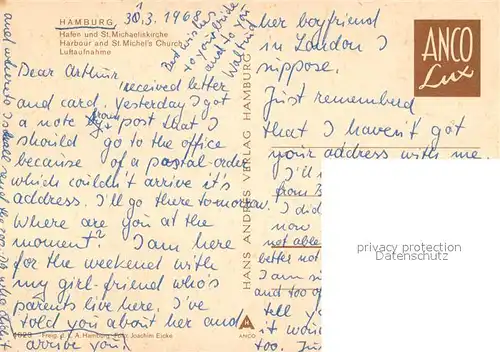 HAMBURG, 30.3.1968
Hafen und St. Michaeliskirche
Harbour and St. Michel's Church
Luftaufnahme
Dear Arthur,
received letter
and card. Yesterday I got
a note from post that I
should go to the office
because of a postal-order
which couldn't arrive it's
address. I'll go there tomorrow.
Where are you at the
moment? I am here
for the weekend with
my girl-friend who's
parents live here. I've
told you about her and
her boyfriend
in London I
suppose.
Just remembered
that I haven't got
your address with me.
I'll
from
I did
now
not able
better not
I am
and too
tell
it wou
too.
Just
Best wishes
to your bride
and to you
Waltraud
and where to I shall send the
arrive you!
ANCO
Lux
HANS ANDRES VERLAG HAMBURG
ANCO
4023 Freig. d. L. A. Hamburg Foto: Joachim Eicke
privacy protection
Datenschutz